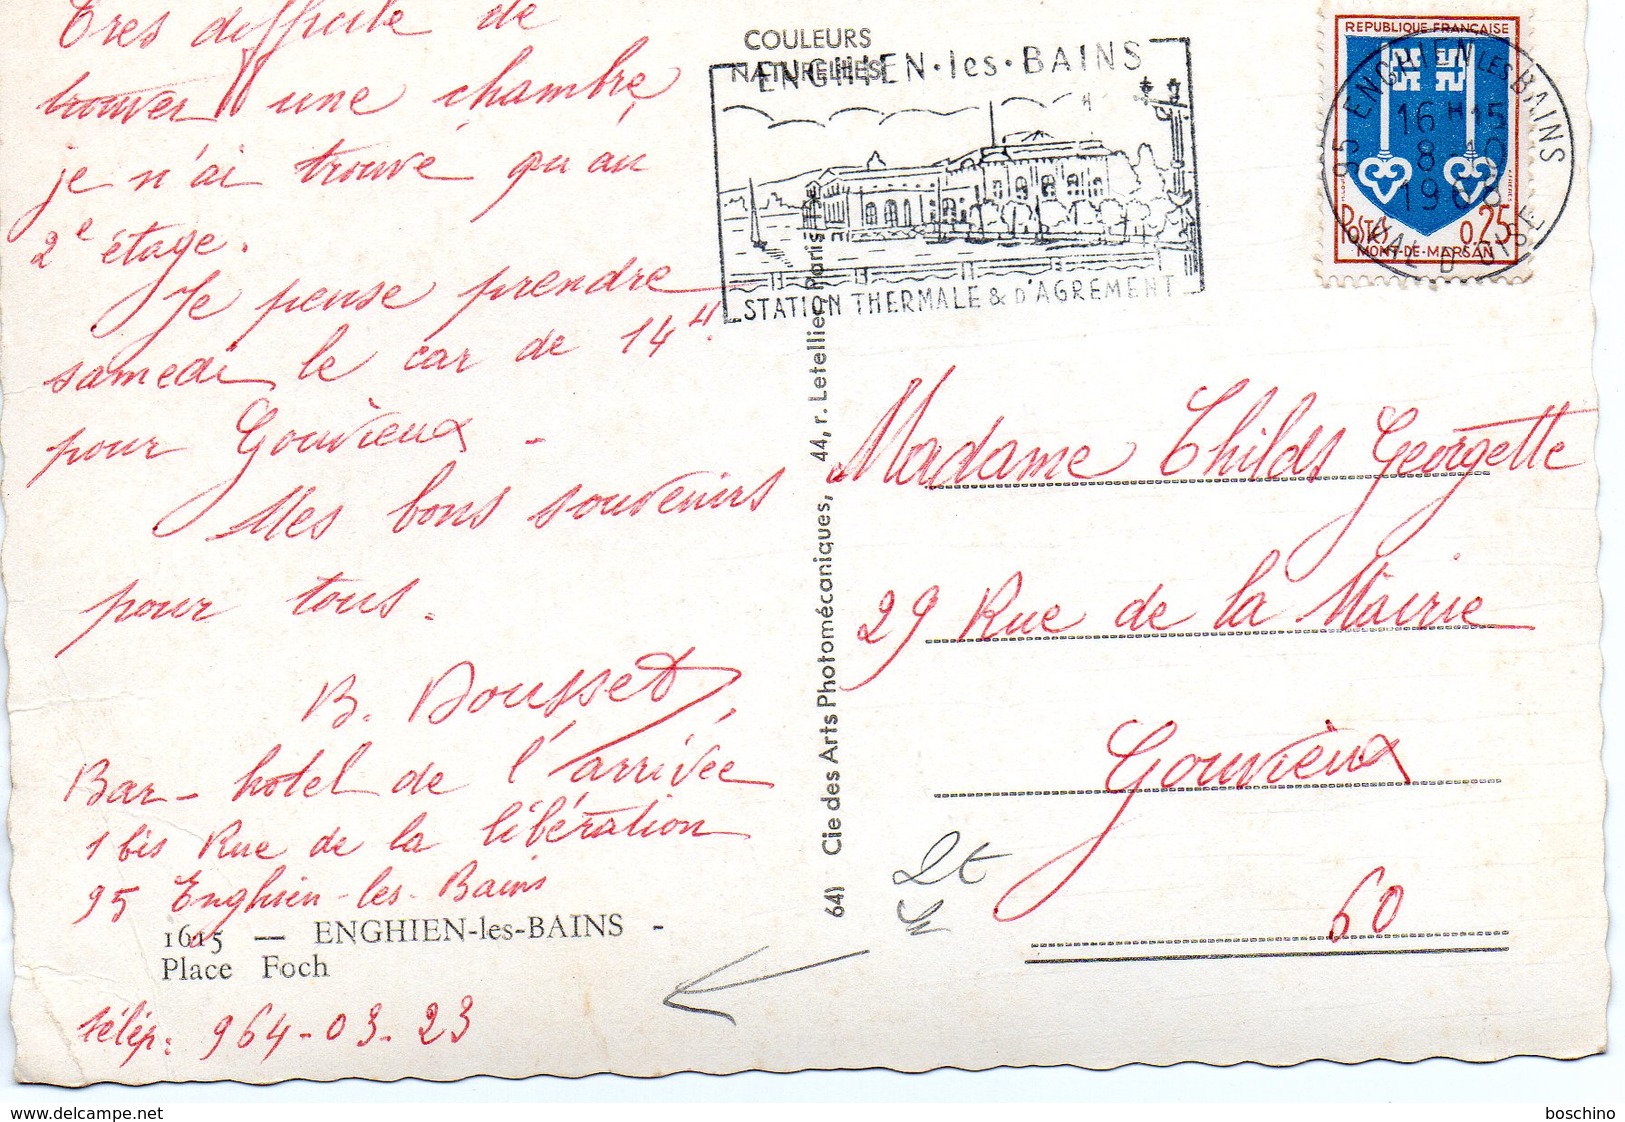 Très difficile de
trouver une chambre,
je n'ai trouvé qu'au
2e étage.
Je pense prendre
samedi le car de 14H.
pour Gouvieux -
Mes bons souvenirs
pour tous.
B. Dousset
Bar - hotel de l'arrivée
1 bis Rue de la libération
95 Enghien-les-Bains
1615 — ENGHIEN-les-BAINS -
Place Foch
télép: 964-03-23
COULEURS
NATURELLES
ENGHIEN·les·BAINS
STATION THERMALE & D'AGREMENT
64) Cie des Arts Photomécaniques, 44, r. Letellier, Paris
REPUBLIQUE FRANÇAISE
POSTES 0,25
MONT-DE-MARSAN
95 ENGHIEN LES BAINS
16 H 15
8 -10
196
VAL D'OISE
Madame Childs Georgette
29 Rue de la Mairie
Gouvieux
60
2€
delcampe.net
boschino